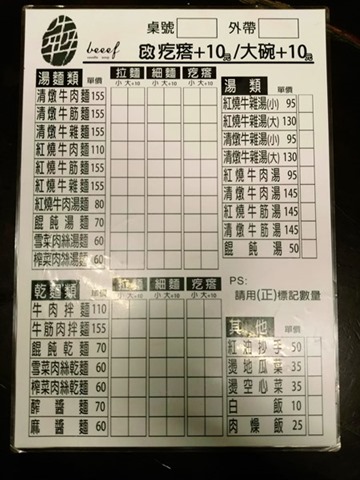 beeef
noodle soup
桌號 外帶
改疙瘩+10元/大碗+10元
湯麵類 單價 拉麵 細麵 疙瘩
小 大+10 小 大+10 小 大+10
清燉牛肉麵 155
清燉牛筋麵 155
清燉牛雜麵 155
紅燒牛肉麵 110
紅燒牛筋麵 155
紅燒牛雜麵 155
紅燒牛肉湯麵 80
餛飩湯麵 70
雪菜肉絲湯麵 60
榨菜肉絲湯麵 60
乾麵類 單價 拉麵 細麵 疙瘩
小 大+10 小 大+10 小 大+10
牛肉拌麵 110
牛筋肉拌麵 155
餛飩乾麵 70
雪菜肉絲乾麵 60
榨菜肉絲乾麵 60
醡醬麵 70
麻醬麵 60
湯類 單價
紅燒牛雜湯(小) 95
紅燒牛雜湯(大) 130
清燉牛雜湯(小) 95
清燉牛雜湯(大) 130
紅燒牛肉湯 95
清燉牛肉湯 145
紅燒牛筋湯 145
清燉牛筋湯 145
餛飩湯 50
PS:
請用(正)標記數量
其他 單價
紅油抄手 50
燙地瓜菜 35
燙空心菜 35
白飯 10
肉燥飯 25